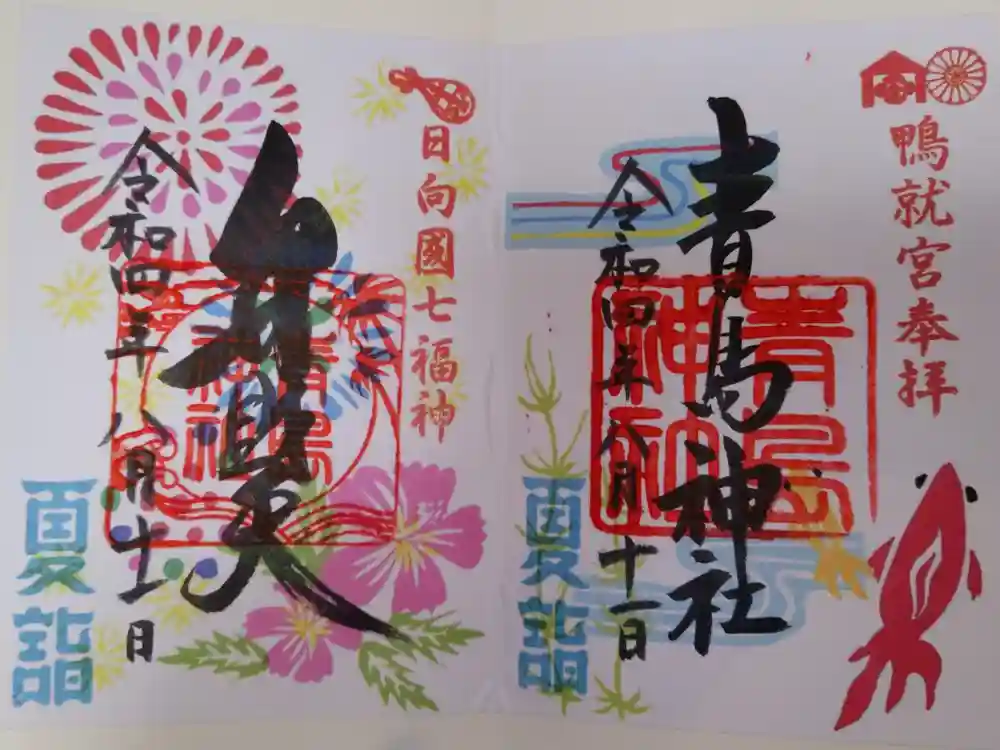 鴨就宮奉拝
青島神社
青島神社
令和四年八月十一日
夏詣
日向國七福神
弁財天
青島神社
令和四年八月十一日
夏詣